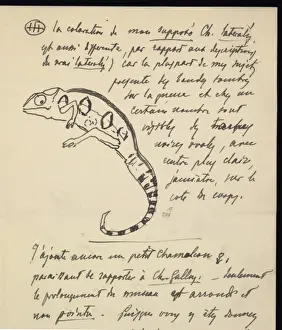 La coloration de mon supposé Ch. lateralis,
est aussi différente, par rapport aux descriptions
du vrai lateralis) car la plupart de mes sujets
présente des bandes sombres
sur la queue et chez un
certain nombre sont
visibles des
noires ovales, avec
centre plus clair,
jaunâtre, sur le
côté du corps.
J'ajoute aussi un petit Chamaeleon 8,
paraissant de rapporter à Ch. Gallus. - seulement
le prolongement du museau est arrondi et
non pointu. Puisque vous y êtes